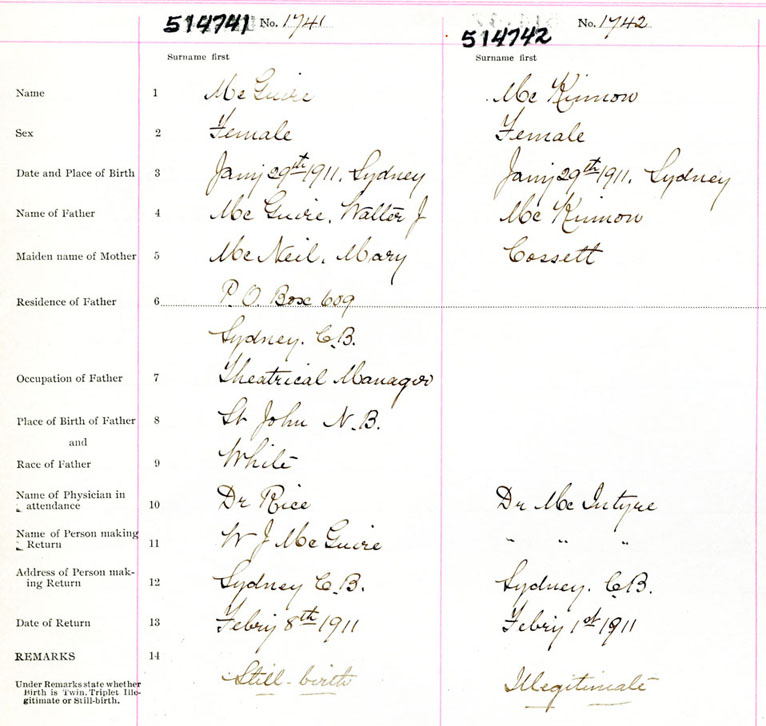 514741 No. 1741 514742 No. 1742
Surname first Surname first
Name 1 McGuire McKinnon
Sex 2 Female Female
Date and Place of Birth 3 Jany 29th 1911. Sydney Jany 29th 1911. Sydney
Name of Father 4 McGuire, Walter J McKinnon
Maiden name of Mother 5 McNeil, Mary Cossett
Residence of Father 6 P.O. Box 609
Sydney. C.B.
Occupation of Father 7 Theatrical Manager
Place of Birth of Father 8 St John N.B.
and
Race of Father 9 White
Name of Physician in
attendance 10 Dr Rice Dr McIntyre
Name of Person making
Return 11 W J McGuire " " "
Address of Person mak-
ing Return 12 Sydney C.B. Sydney. C.B.
Date of Return 13 Febry 8th 1911 Febry 1st 1911
REMARKS 14
Under Remarks state whether Still-birth Illegitimate
Birth is Twin. Triplet Ille-
gitimate or Still-birth.